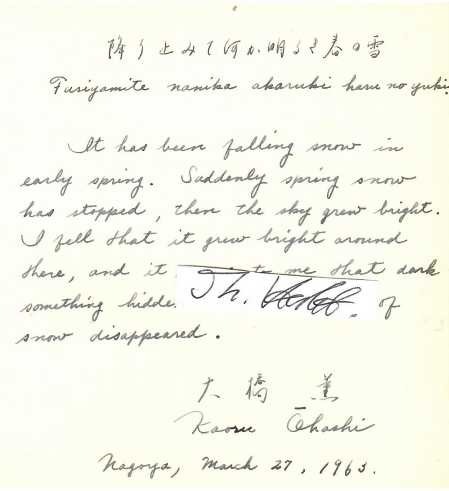 降り止みて何か明るき春の雪
Furiyamite nanika akaruki haru no yuki.
It has been falling snow in
early spring. Suddenly spring snow
has stopped, then the sky grew bright.
I felt that it grew bright around
there, and it to me that dark
something hidde of
snow disappeared.
大橋 薫
Kaoru Ōhashi
Nagoya, March 27, 1963.